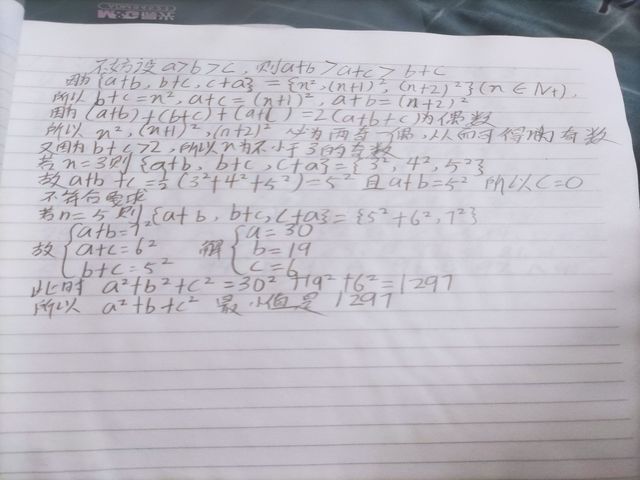 不妨设a>b>c,则a+b>a+c>b+c
因为{a+b,b+c,c+a}={n²,(n+1)²,(n+2)²}(n∈N+),
所以b+c=n²,a+c=(n+1)²,a+b=(n+2)²
因为(a+b)+(b+c)+(a+c)=2(a+b+c)为偶数
所以n²,(n+1)²,(n+2)²必为两奇一偶,从而可得n为奇数
又因为b+c>2,所以n为不小于3的奇数
若n=3则{a+b,b+c,c+a}={3²,4²,5²}
故a+b+c=½(3²+4²+5²)=5²且a+b=5²所以c=0
不符合要求
若n=5则{a+b,b+c,c+a}={5²+6²,7²}
故{a+b=7² a+c=6² b+c=5² 解{a=30 b=19 c=6
此时a²+b²+c²=30²+19²+6²=1297
所以a²+b+c²最小值是1297